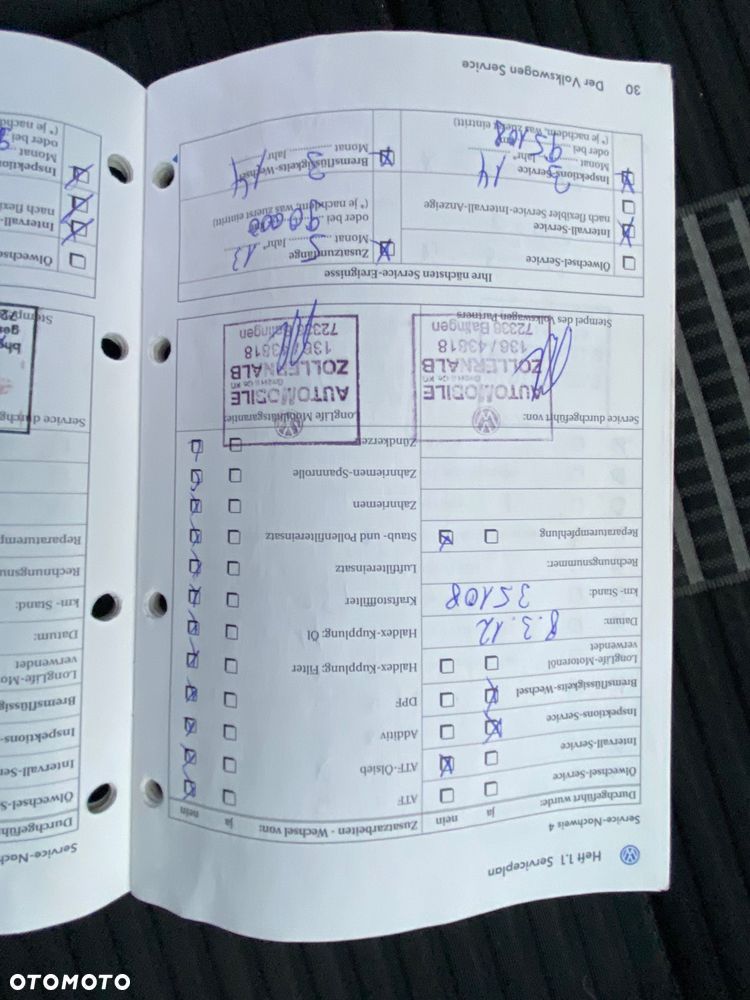 Heft 1.1 Serviceplan
Service-Nachweis 4
Durchgeführt wurde: ja nein
Ölwechsel-Service
Intervall-Service
Inspektions-Service
Bremsflüssigkeits-Wechsel
LongLife-Motorenöl
verwendet
Datum: 8.3.12
km- Stand: 35108
Rechnungsnummer:
Reparaturempfehlung
Service durchgeführt von:
AUTOMOBILE
GmbH & Co. KG
ZOLLERNALB
136 / 43818
72336 Balingen
Stempel des Volkswagen Partners
Zusatzarbeiten - Wechsel von: ja nein
ATF
ATF-Ölsieb
Additiv
DPF
Haldex-Kupplung: Filter
Haldex-Kupplung: Öl
Kraftstofffilter
Luftfiltereinsatz
Staub- und Pollenfiltereinsatz
Zahnriemen
Zahnriemen-Spannrolle
Zündkerzen
LongLife Mobilitätsgarantie:
AUTOMOBILE
GmbH & Co. KG
ZOLLERNALB
136 / 43818
72336 Balingen
Ihre nächsten Service-Ereignisse
Ölwechsel-Service
Intervall-Service
nach flexibler Service-Intervall-Anzeige
Inspektions-Service
Monat 3 Jahr* 14
oder bei 95108
(* je nachdem, was zuerst eintritt)
Zusatzumfänge
Monat 5 Jahr* 13
oder bei 90000
(* je nachdem, was zuerst eintritt)
Bremsflüssigkeits-Wechsel
Monat 3 Jahr 14
30 Der Volkswagen Service
Service-Nach
Durchgeführ
Ölwechsel-S
Intervall-Ser
Inspektions-
Bremsflüssig
LongLife-Mo
verwendet
Datum:
km- Stand:
Rechnungsnu
Reparaturemp
Service durchg
Stemp
Ölwechs
Intervall-
nach flexi
Inspektion
Monat
oder bei
(* je nachd
OTOMOTO